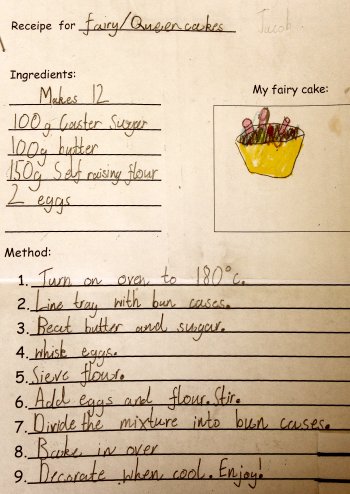 Receipe for fairy/Queen cakes
Jacob
Ingredients:
My fairy cake:
Makes 12
100g Caster Sugar
100g butter
150g Self raising flour
2 eggs
Method:
1. Turn on oven to 180°c.
2. Line tray with bun cases.
3. Beat butter and sugar.
4. whisk eggs.
5. Sieve flour.
6. Add eggs and flour. Stir.
7. Divide the mixture into bun cases.
8. Bake in over
9. Decorate when cool. Enjoy!